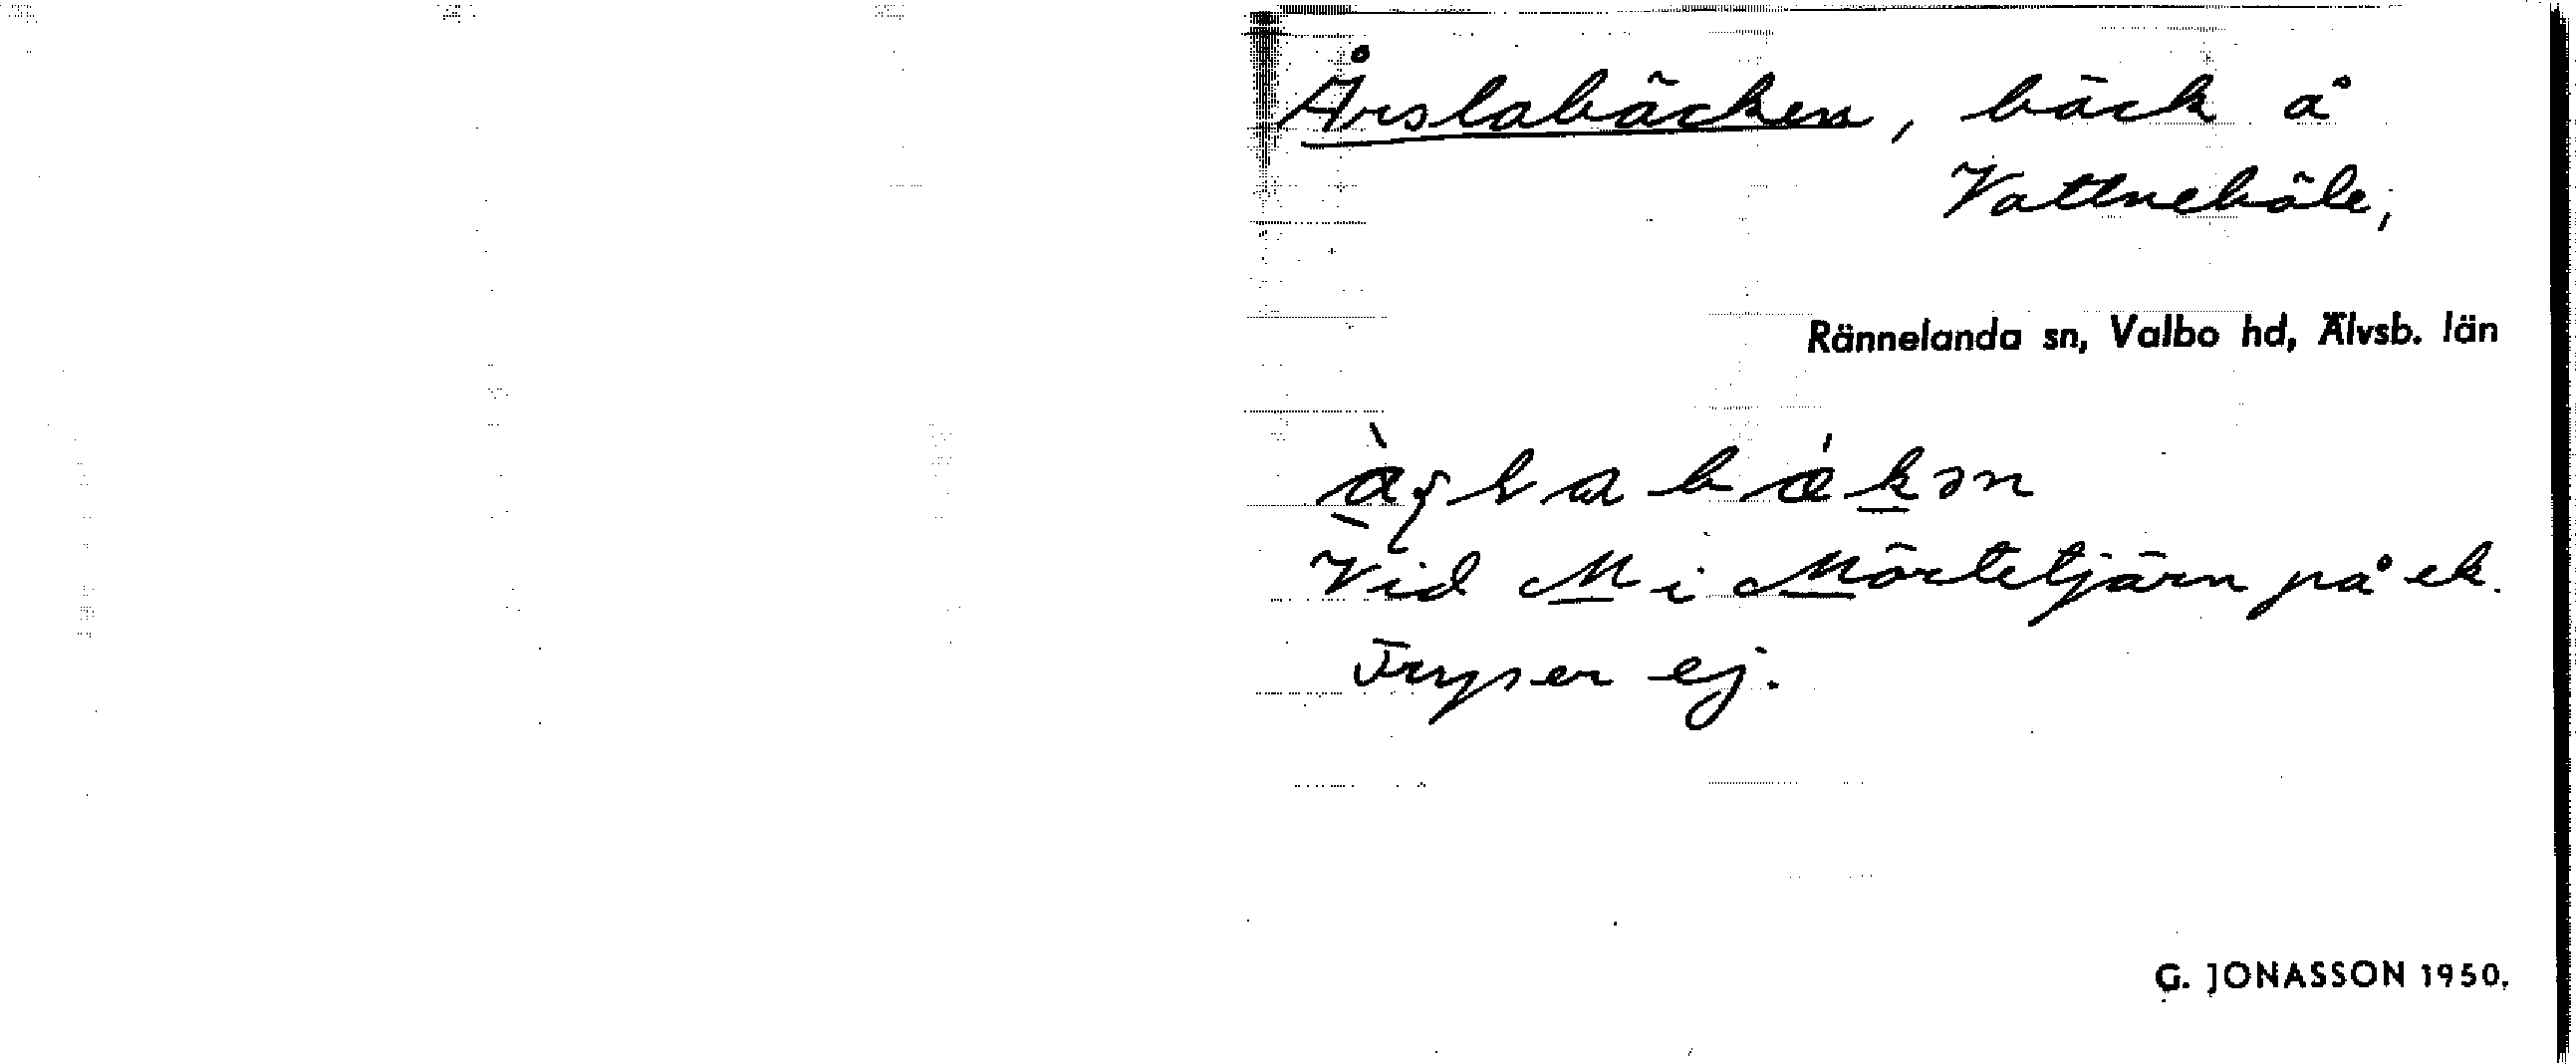 Årslabäcken, bäck å
Vattneböle,
Rännelanda sn, Valbo hd, Älvsb. län
Vid M i Mörtetjärn på ek.
Fryser ej.
G. JONASSON 1950.